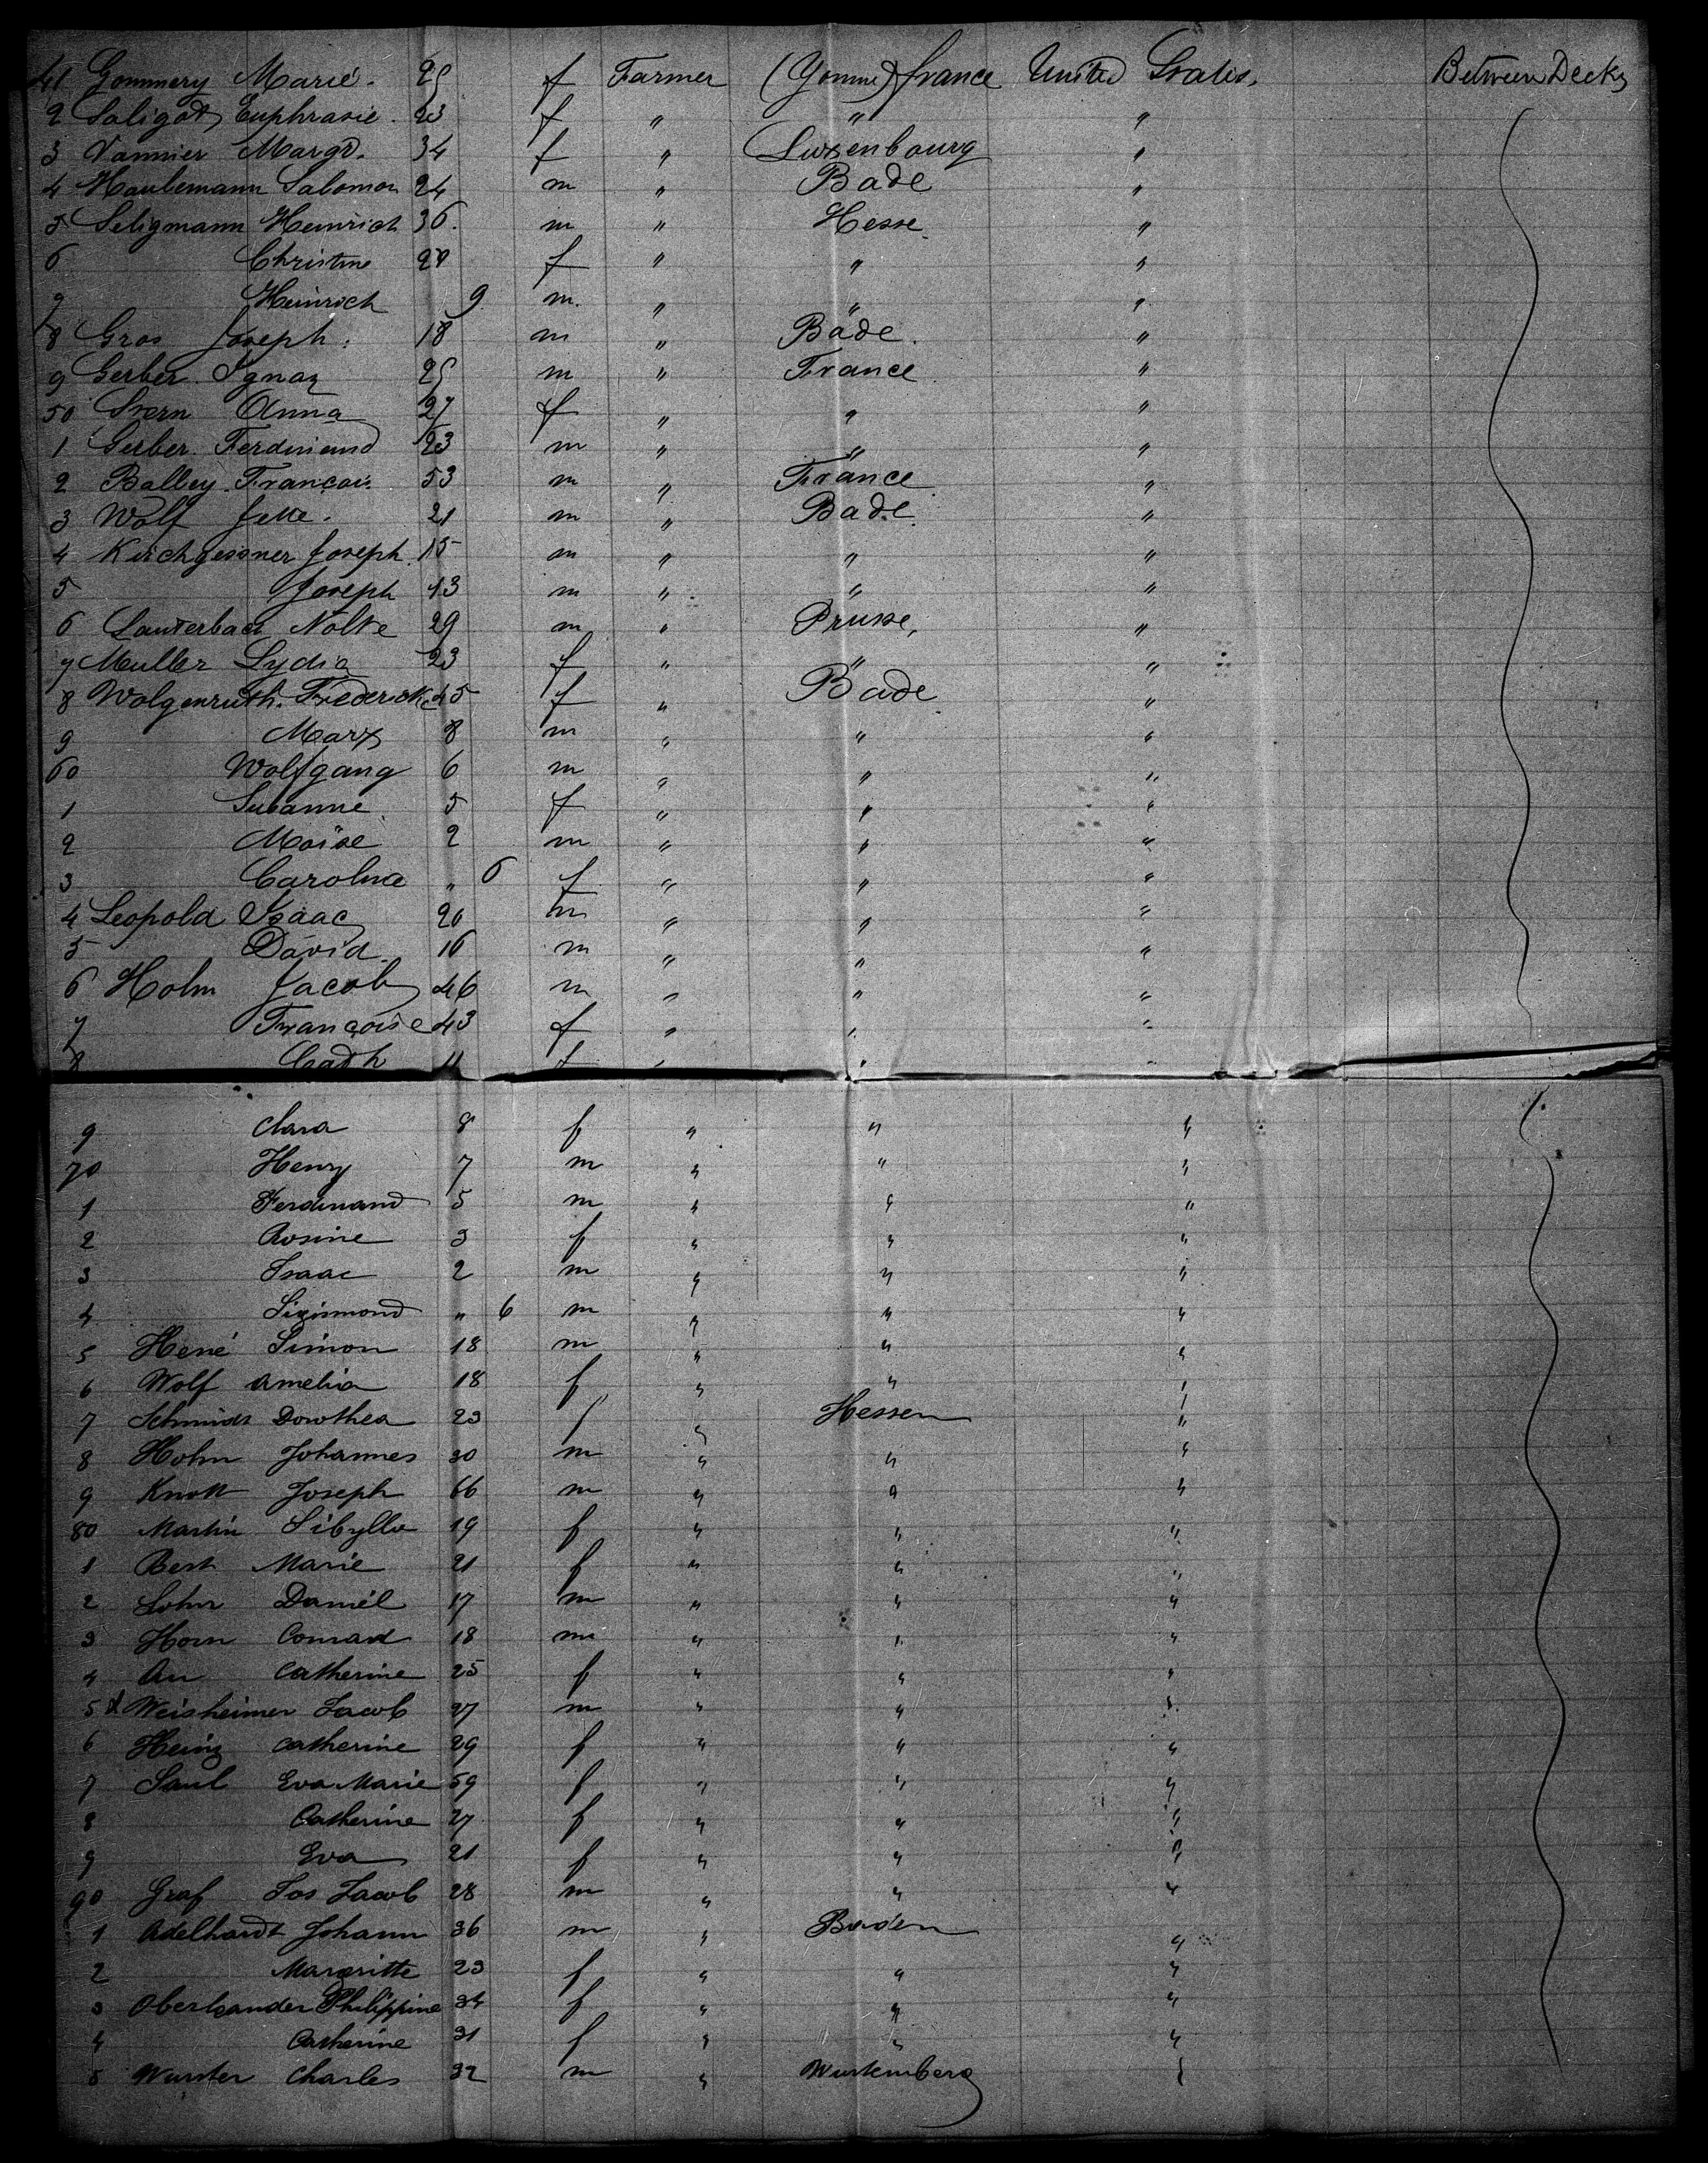 41 Gommery Marie. 25 f Farmer (Yonne) france United States. Between Decks
2 Saligot Euphrasie. 23 f " " "
3 Vannier Margt. 34 f " Luxenbourg "
4 Haulemann Salomon 24 m " Bade "
5 Seligmann Heinrich 36. m " Hesse. "
6 Christine 29 f " " "
7 Heinrich 9. m. " " "
8 Gros Joseph. 18 m " Bade. "
9 Gerber Ignaz 25 m " France "
50 Stern Anna 27 f " " "
1 Gerber. Ferdinand 23 m " " "
2 Balley. François. 53 m " France "
3 Wolf Jette. 21 m " Bade. "
4 Kirchgessner Joseph. 15 m " " "
5 Joseph 13 m " " "
6 Lauterbach Nolte 29 m " Prusse, "
7 Muller Lydia 23 f " " "
8 Wolgenruth. Frederike 45 f " Bade "
9 Marx 8 m " " "
60 Wolfgang 6 m " " "
1 Susanne. 5 f " " "
2 Moïse 2 m " " "
3 Carolina " 6 f " " "
4 Leopold Isaac 20 m " " "
5 David. 16 m " " "
6 Holm Jacob 46 m " " "
7 Françoise 43 f " " "
8 Cath 11 f " " "
9 Clara 8 f " " "
70 Henry 7 m " " "
1 Ferdinand 5 m " " "
2 Rosine 3 f " " "
3 Isaac 2 m " " "
4 Sigismond " 6 m " " "
5 Hené Simon 18 m " " "
6 Wolf Amelia 18 f " " "
7 Schmidt Dorothea 23 f " Hessen "
8 Hohn Johannes 30 m " " "
9 Knott Joseph 66 m " " "
80 Martin Sibylla 19 f " " "
1 Best Marie 21 f " " "
2 Lohr Daniel 17 m " " "
3 Horn Conrad 18 m " " "
4 Au Catherine 25 f " " "
5 x Weisheimer Jacob 27 m " " "
6 Heinz Catherine 29 f " " "
7 Saul Eva Marie 59 f " " "
8 Catherine 27 f " " "
9 Eva 21 f " " "
90 Graf Jos Jacob 28 m " " "
1 Adelhardt Johann 36 m " Baden "
2 Margritte 23 f " " "
3 Oberlaander Philippine 34 f " " "
4 Catherine 31 f " " "
5 Wurster Charles 32 m " Wurtemberg "